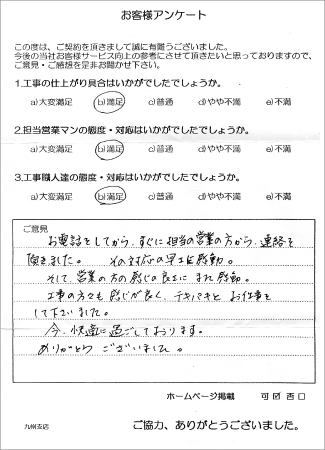 お客様アンケート
この度は、ご契約を頂きまして誠に有難うございました。
今後の当社お客様サービス向上の参考にさせて頂きたいと思っておりますので、
ご意見・ご感想を是非お聞かせ下さい。
1.工事の仕上がり具合はいかがでしたでしょうか。
a)大変満足 b)満足 c)普通 d)やや不満 e)不満
2.担当営業マンの態度・対応はいかがでしたでしょうか。
a)大変満足 b)満足 c)普通 d)やや不満 e)不満
3.工事職人達の態度・対応はいかがでしたでしょうか。
a)大変満足 b)満足 c)普通 d)やや不満 e)不満
ご意見
お電話をしてから、すぐに担当の営業の方から、連絡を
頂きました。 その対応の早さに感動。
そして、営業の方の感じの良さに また感動。
工事の方々も 感じが良く、テキパキと お仕事を
して下さいました。
今、快適に過ごしております。
ありがとう ございました。
ホームページ掲載 可☑ 否□
九州支店
ご協力、ありがとうございました。